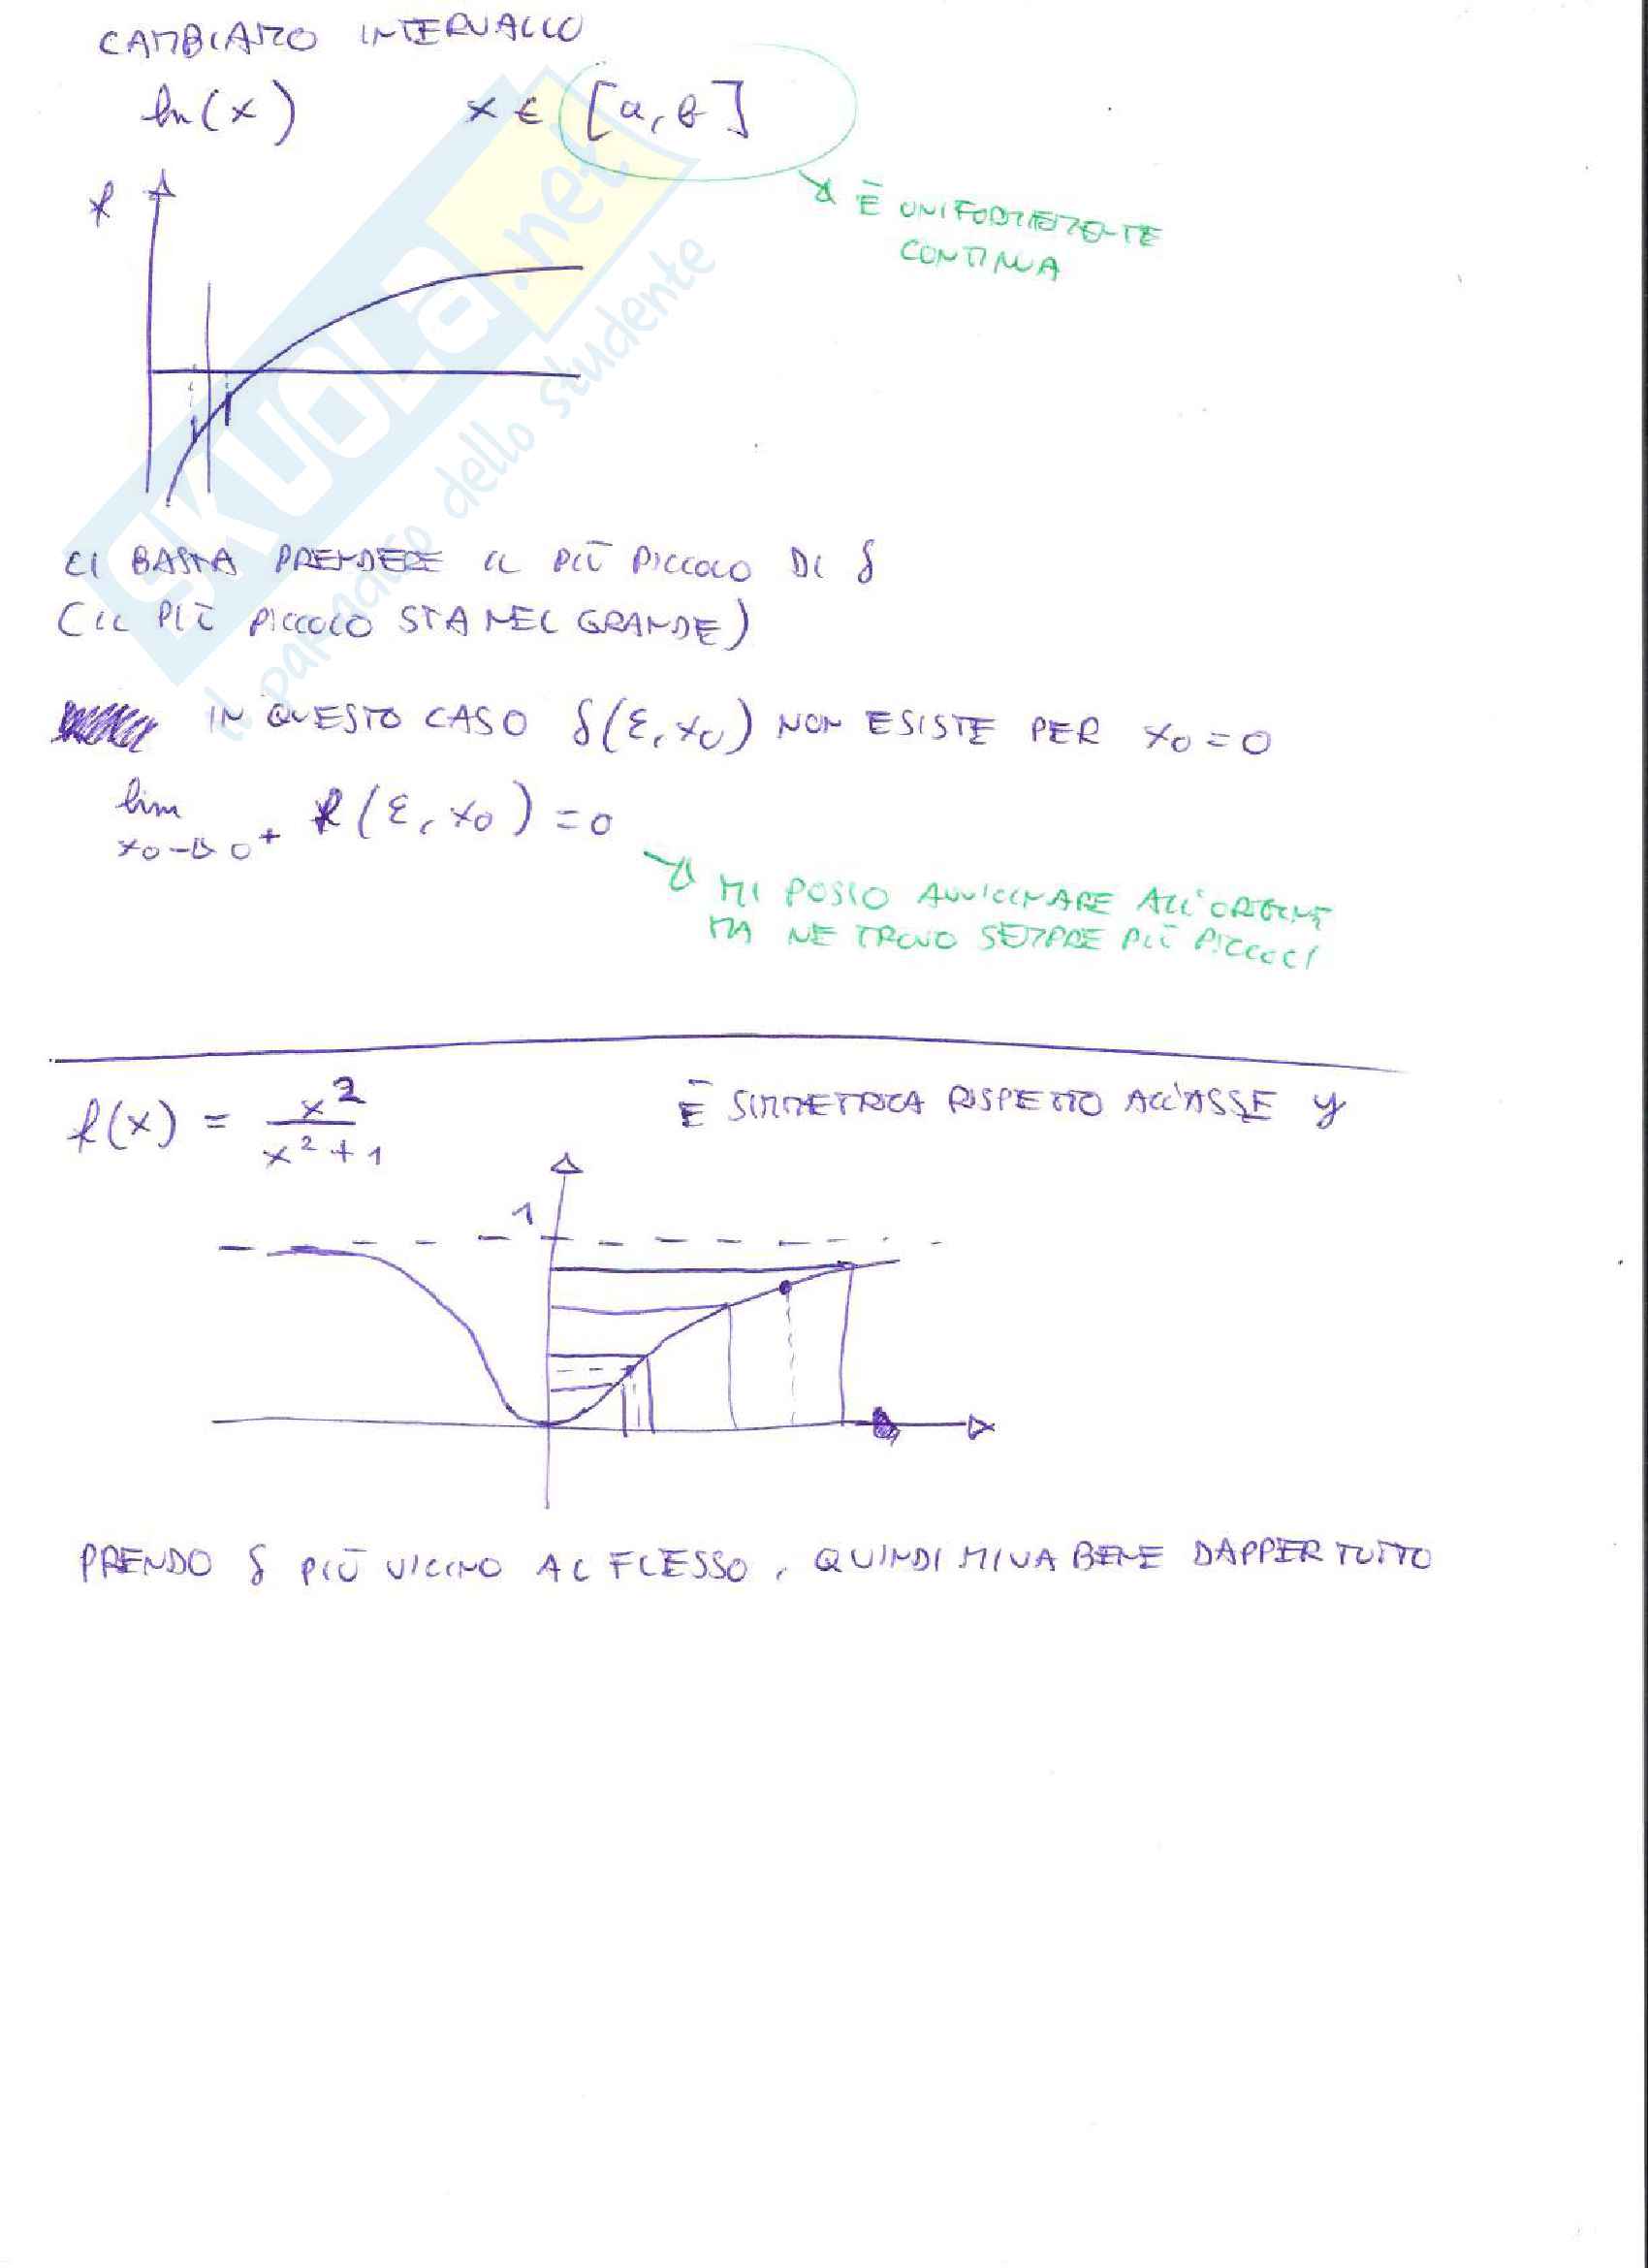 CAMBIAMO INTERVALLO
ln(x) x ∈ [a, b]
f
È UNIFORMEMENTE
CONTINUA
SKUOLa.net
il paradiso dello studente
CI BASTA PRENDERE IL PIÙ PICCOLO DI δ
(IL PIÙ PICCOLO STA NEL GRANDE)
IN QUESTO CASO δ(ε, x₀) NON ESISTE PER x₀ = 0
lim x₀→0⁺ f(ε, x₀) = 0
MI POSSO AVVICINARE ALL'ORIGINE
MA NE TROVO SEMPRE PIÙ PICCOLI
f(x) = x²/(x²+1) È SIMMETRICA RISPETTO ALL'ASSE y
1
PRENDO δ PIÙ VICINO AL FLESSO, QUINDI MI VA BENE DAPPERTUTTO